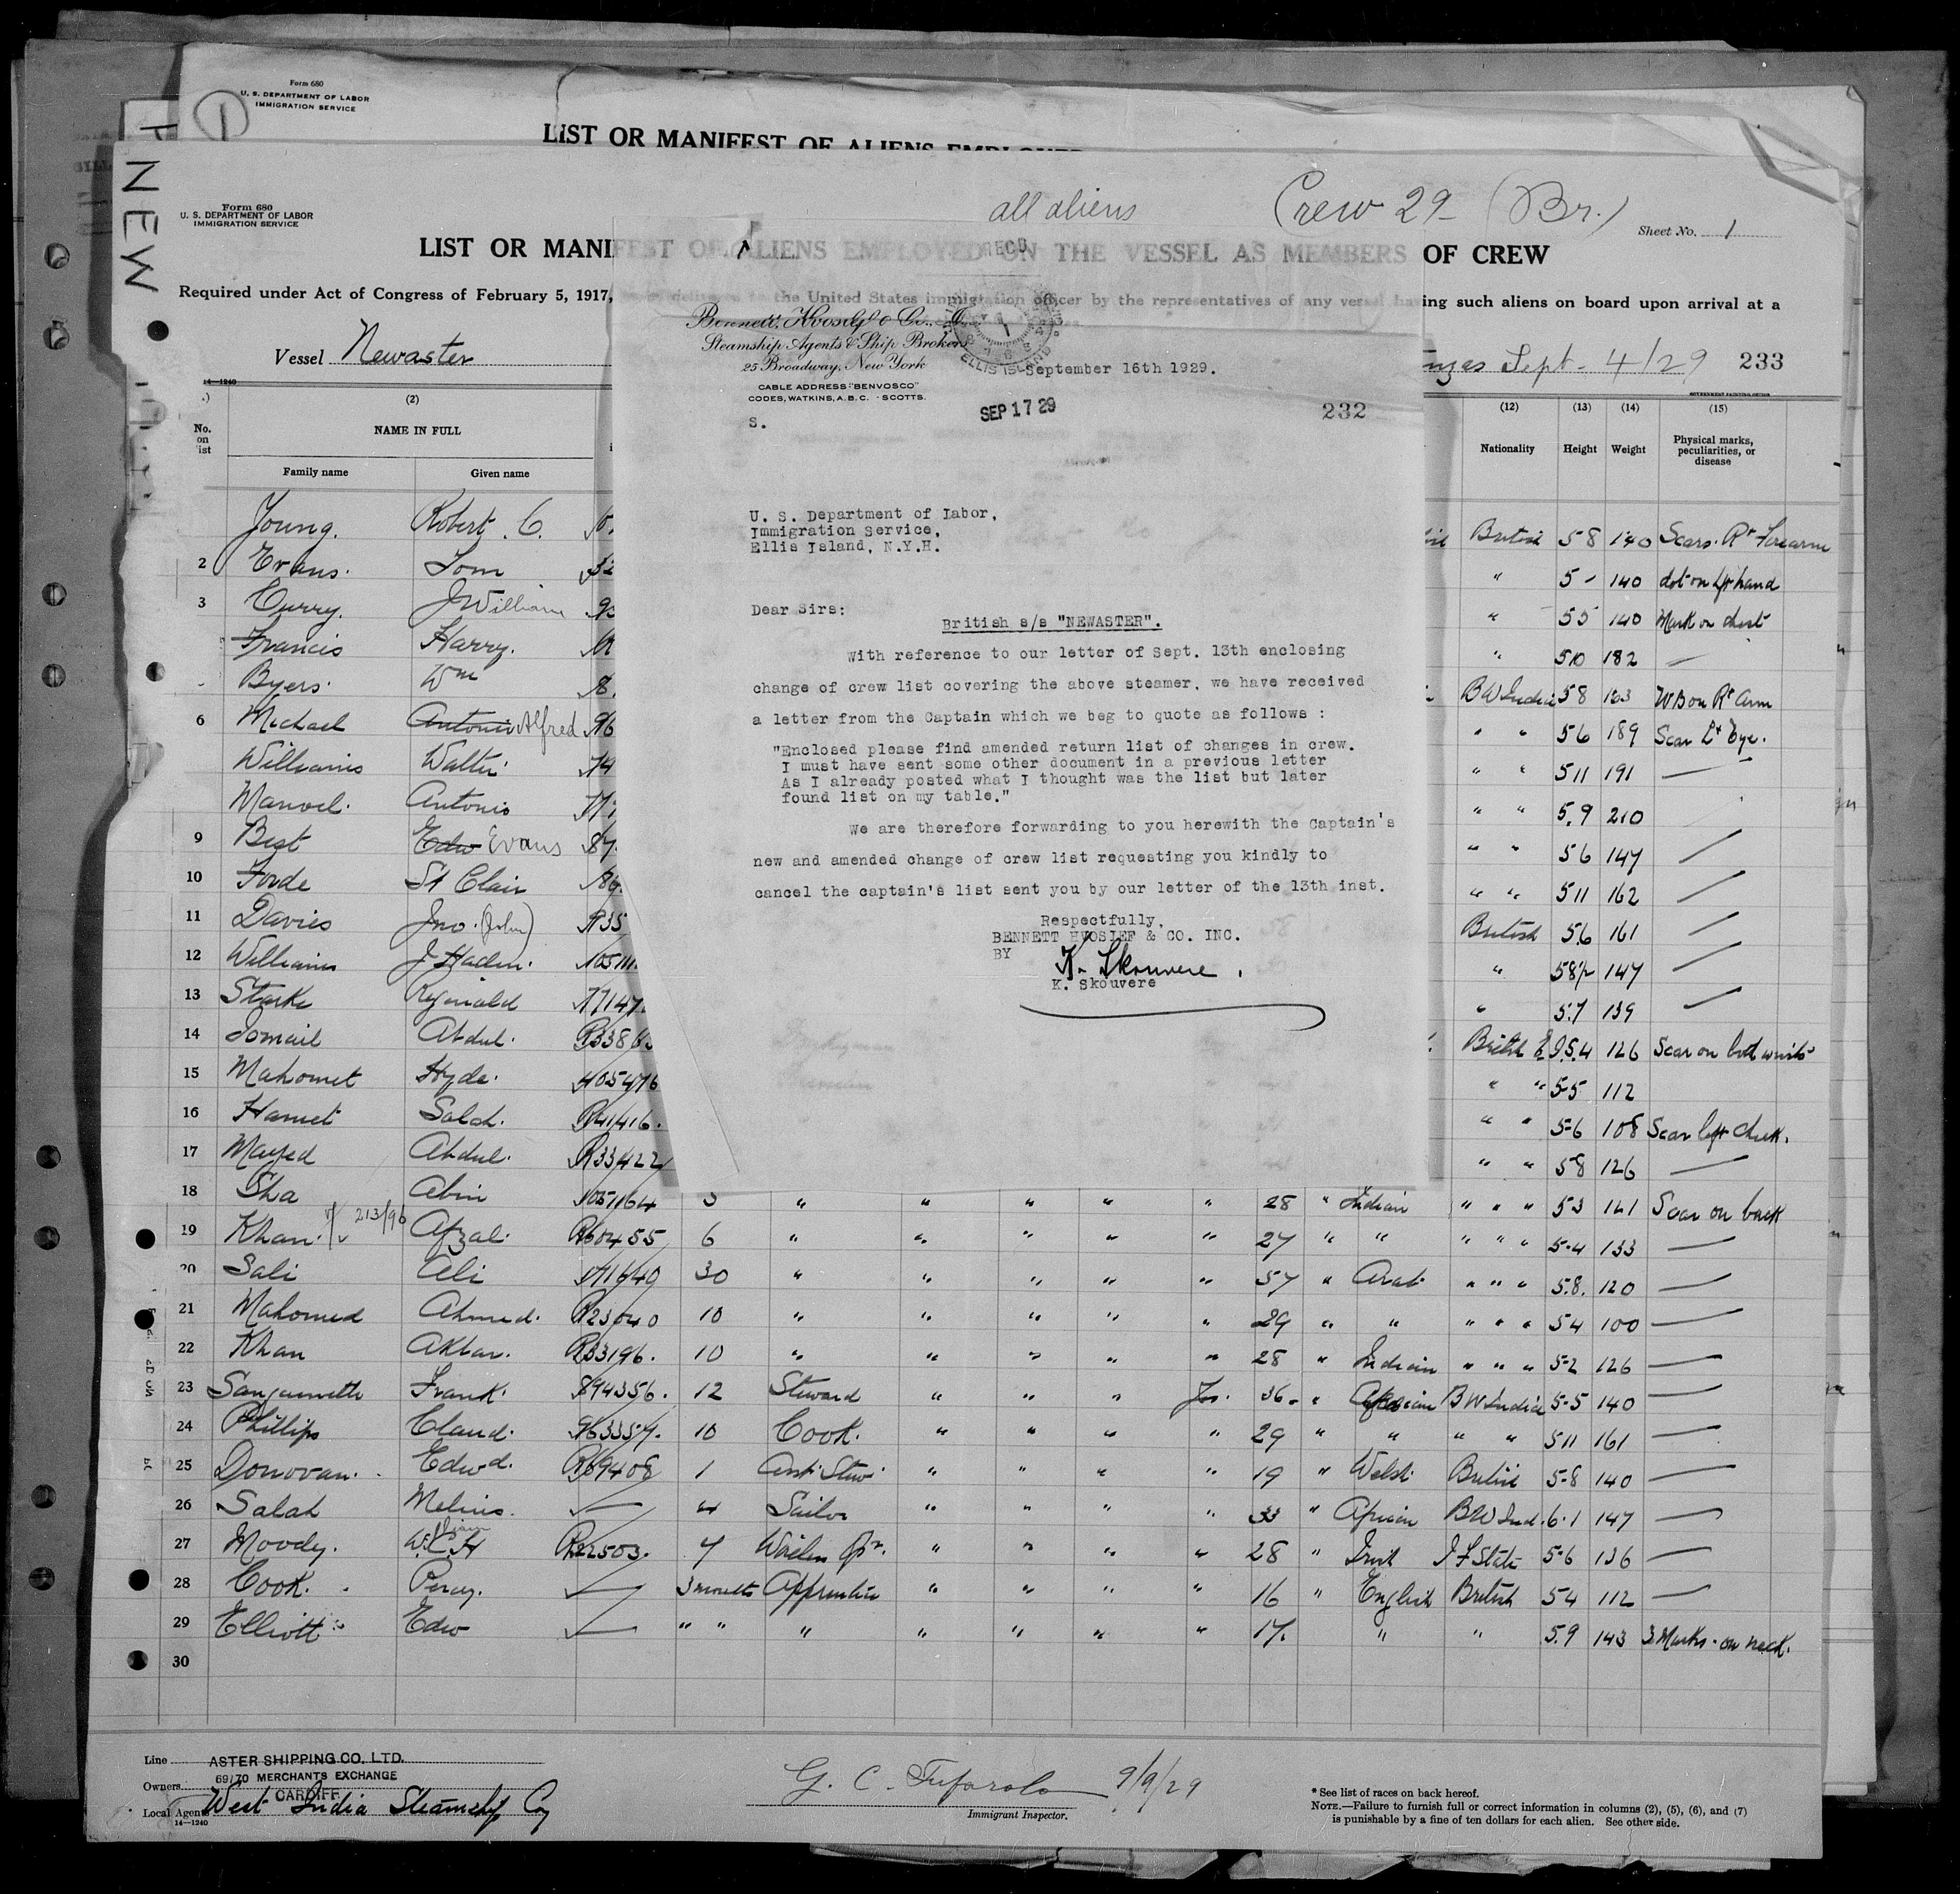 Form 680
U. S. DEPARTMENT OF LABOR
IMMIGRATION SERVICE
1
LIST OR MANIFEST OF ALIENS EMPLOYED
NEW
Form 680
U. S. DEPARTMENT OF LABOR
IMMIGRATION SERVICE
all aliens
Crew 29 (Br.)
Sheet No. 1
LIST OR MANIFEST OF ALIENS EMPLOYED ON THE VESSEL AS MEMBERS OF CREW
Required under Act of Congress of February 5, 1917, the United States immigration officer by the representatives of any vessel having such aliens on board upon arrival at a
Vessel Newaster
Sept - 4/29 233
14—1240
(2) (12) (13) (14) (15)
No. on list
NAME IN FULL
Family name Given name
Nationality Height Weight Physical marks, peculiarities, or disease
RECD
ELLIS ISLAND
Steamship Agents & Ship Brokers
25 Broadway, New York
CABLE ADDRESS "BENVOSCO"
CODES, WATKINS, A.B.C. - SCOTTS.
September 16th 1929.
SEP 17 29
232
S.
U. S. Department of Labor,
Immigration Service,
Ellis Island, N.Y.H.
Dear Sirs:
British s/s "NEWASTER".
With reference to our letter of Sept. 13th enclosing
change of crew list covering the above steamer, we have received
a letter from the Captain which we beg to quote as follows :
"Enclosed please find amended return list of changes in crew.
I must have sent some other document in a previous letter
As I already posted what I thought was the list but later
found list on my table."
We are therefore forwarding to you herewith the Captain's
new and amended change of crew list requesting you kindly to
cancel the captain's list sent you by our letter of the 13th inst.
Respectfully,
BENNETT HVOSLEF & CO. INC.
BY
K. Skouvere
K. Skouvere
Young. Robert. C. British 58 140 Scars. Rt Forearm
2 Evans. Tom " 5 - 140 dot on Lft hand
3 Curry. J William " 55 140 Mark on chest
Francis Harry. " 510 182 —
Byers. Wm BW Indies 58 W B on Rt Arm
6 Michael Antonio Alfred " " 56 189 Scar Lt Eye.
Williams Walter " " 511 191 —
Manoel. Antonio " " 5.9 210
9 Best Edw Evans " " 56 147
10 Forde St Clair " " 511 162
11 Davies Jno. (John) British 56 161
12 Williams J Haden. " 58½ 147
13 Starke Reginald " 5.7 139
14 Ismail Abdul. British 5.4 126 Scar on both wrists
15 Mahomet Hyde. " " 5-5 112
16 Hamet Salah. R41416. " " 5-6 108 Scar left cheek.
17 Mayed Abdul. R33422 " " 58 126 —
18 Sha 28 " Indian " " " 53 Scar on back
19 Khan. 213/96 Afzal. R60455 6 " " " " " 27 " " " " " 5.4 133 —
20 Sali Ali 30 " " " " " 57 " Arab " " " 5.8. 120 —
21 Mahomed Ahmed. R23040 10 " " " " " 29 " " " " " 54 100 —
22 Khan Akbar. R33196. 10 " " " " " 28 " Indian " " " 5-2 126 —
23 Sanguinette Frank. 894356. 12 Steward " " " 36 " African BW Indies 5-5 140 —
24 Phillips Claud. 963357. 10 Cook. " " " " 29 " " " " 511 161 —
25 Donovan. Edwd. R69408 1 Asst Stew " " " " 19 " Welsh British 5-8 140 —
26 Salah 4 Sailor " " " " 33 " African BW Ind. 6.1 147 —
27 Moody. R22503. 7 Wireless Opr. " " " " 28 " Irish I F State 5-6 136 —
28 Cook. Percy. 3 months Apprentice " " " " 16 " English British 54 112 —
29 Elliott Edw " " " " " " " 17. " " 5.9 143 3 Marks on neck.
30
Line ASTER SHIPPING CO. LTD.
69/70 MERCHANTS EXCHANGE
Owners CARDIFF
Local Agents West India Steamship Co
14—1240
9/9/29
Immigrant Inspector.
* See list of races on back hereof.
NOTE.—Failure to furnish full or correct information in columns (2), (5), (6), and (7)
is punishable by a fine of ten dollars for each alien. See other side.